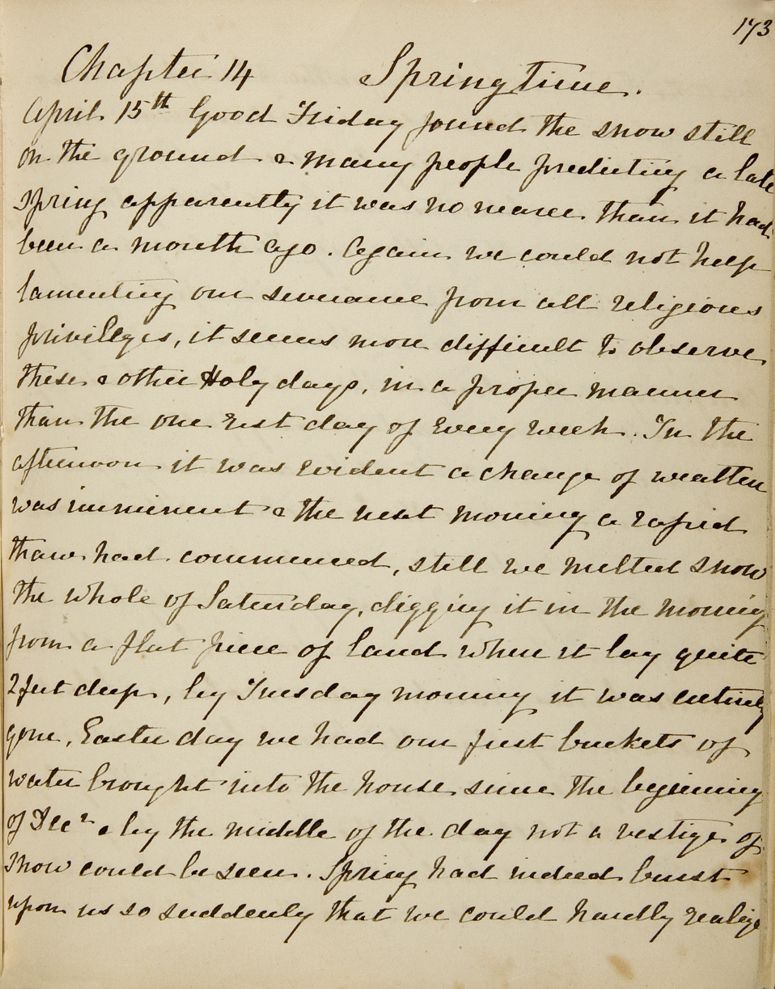 173
Chapter 14 Springtime.
April 15th Good Friday found the snow still
on the ground & many people predicting a late
Spring apparently it was no nearer than it had
been a month ago. Again we could not help
lamenting our severance from all religious
privileges, it seems more difficult to observe
these & other Holy days, in a proper manner
than the one rest day of every week. In the
afternoon it was evident a change of weather
was imminent & the next morning a rapid
thaw had commenced, still we melted snow
the whole of Saturday, digging it in the morning
from a flat piece of land where it lay quite
2 feet deep, by Tuesday morning it was entirely
gone, Easter day we had our first buckets of
water brought into the house since the beginning
of Decr & by the middle of the day not a vestige of
snow could be seen. Spring had indeed burst
upon us so suddenly that we could hardly realize